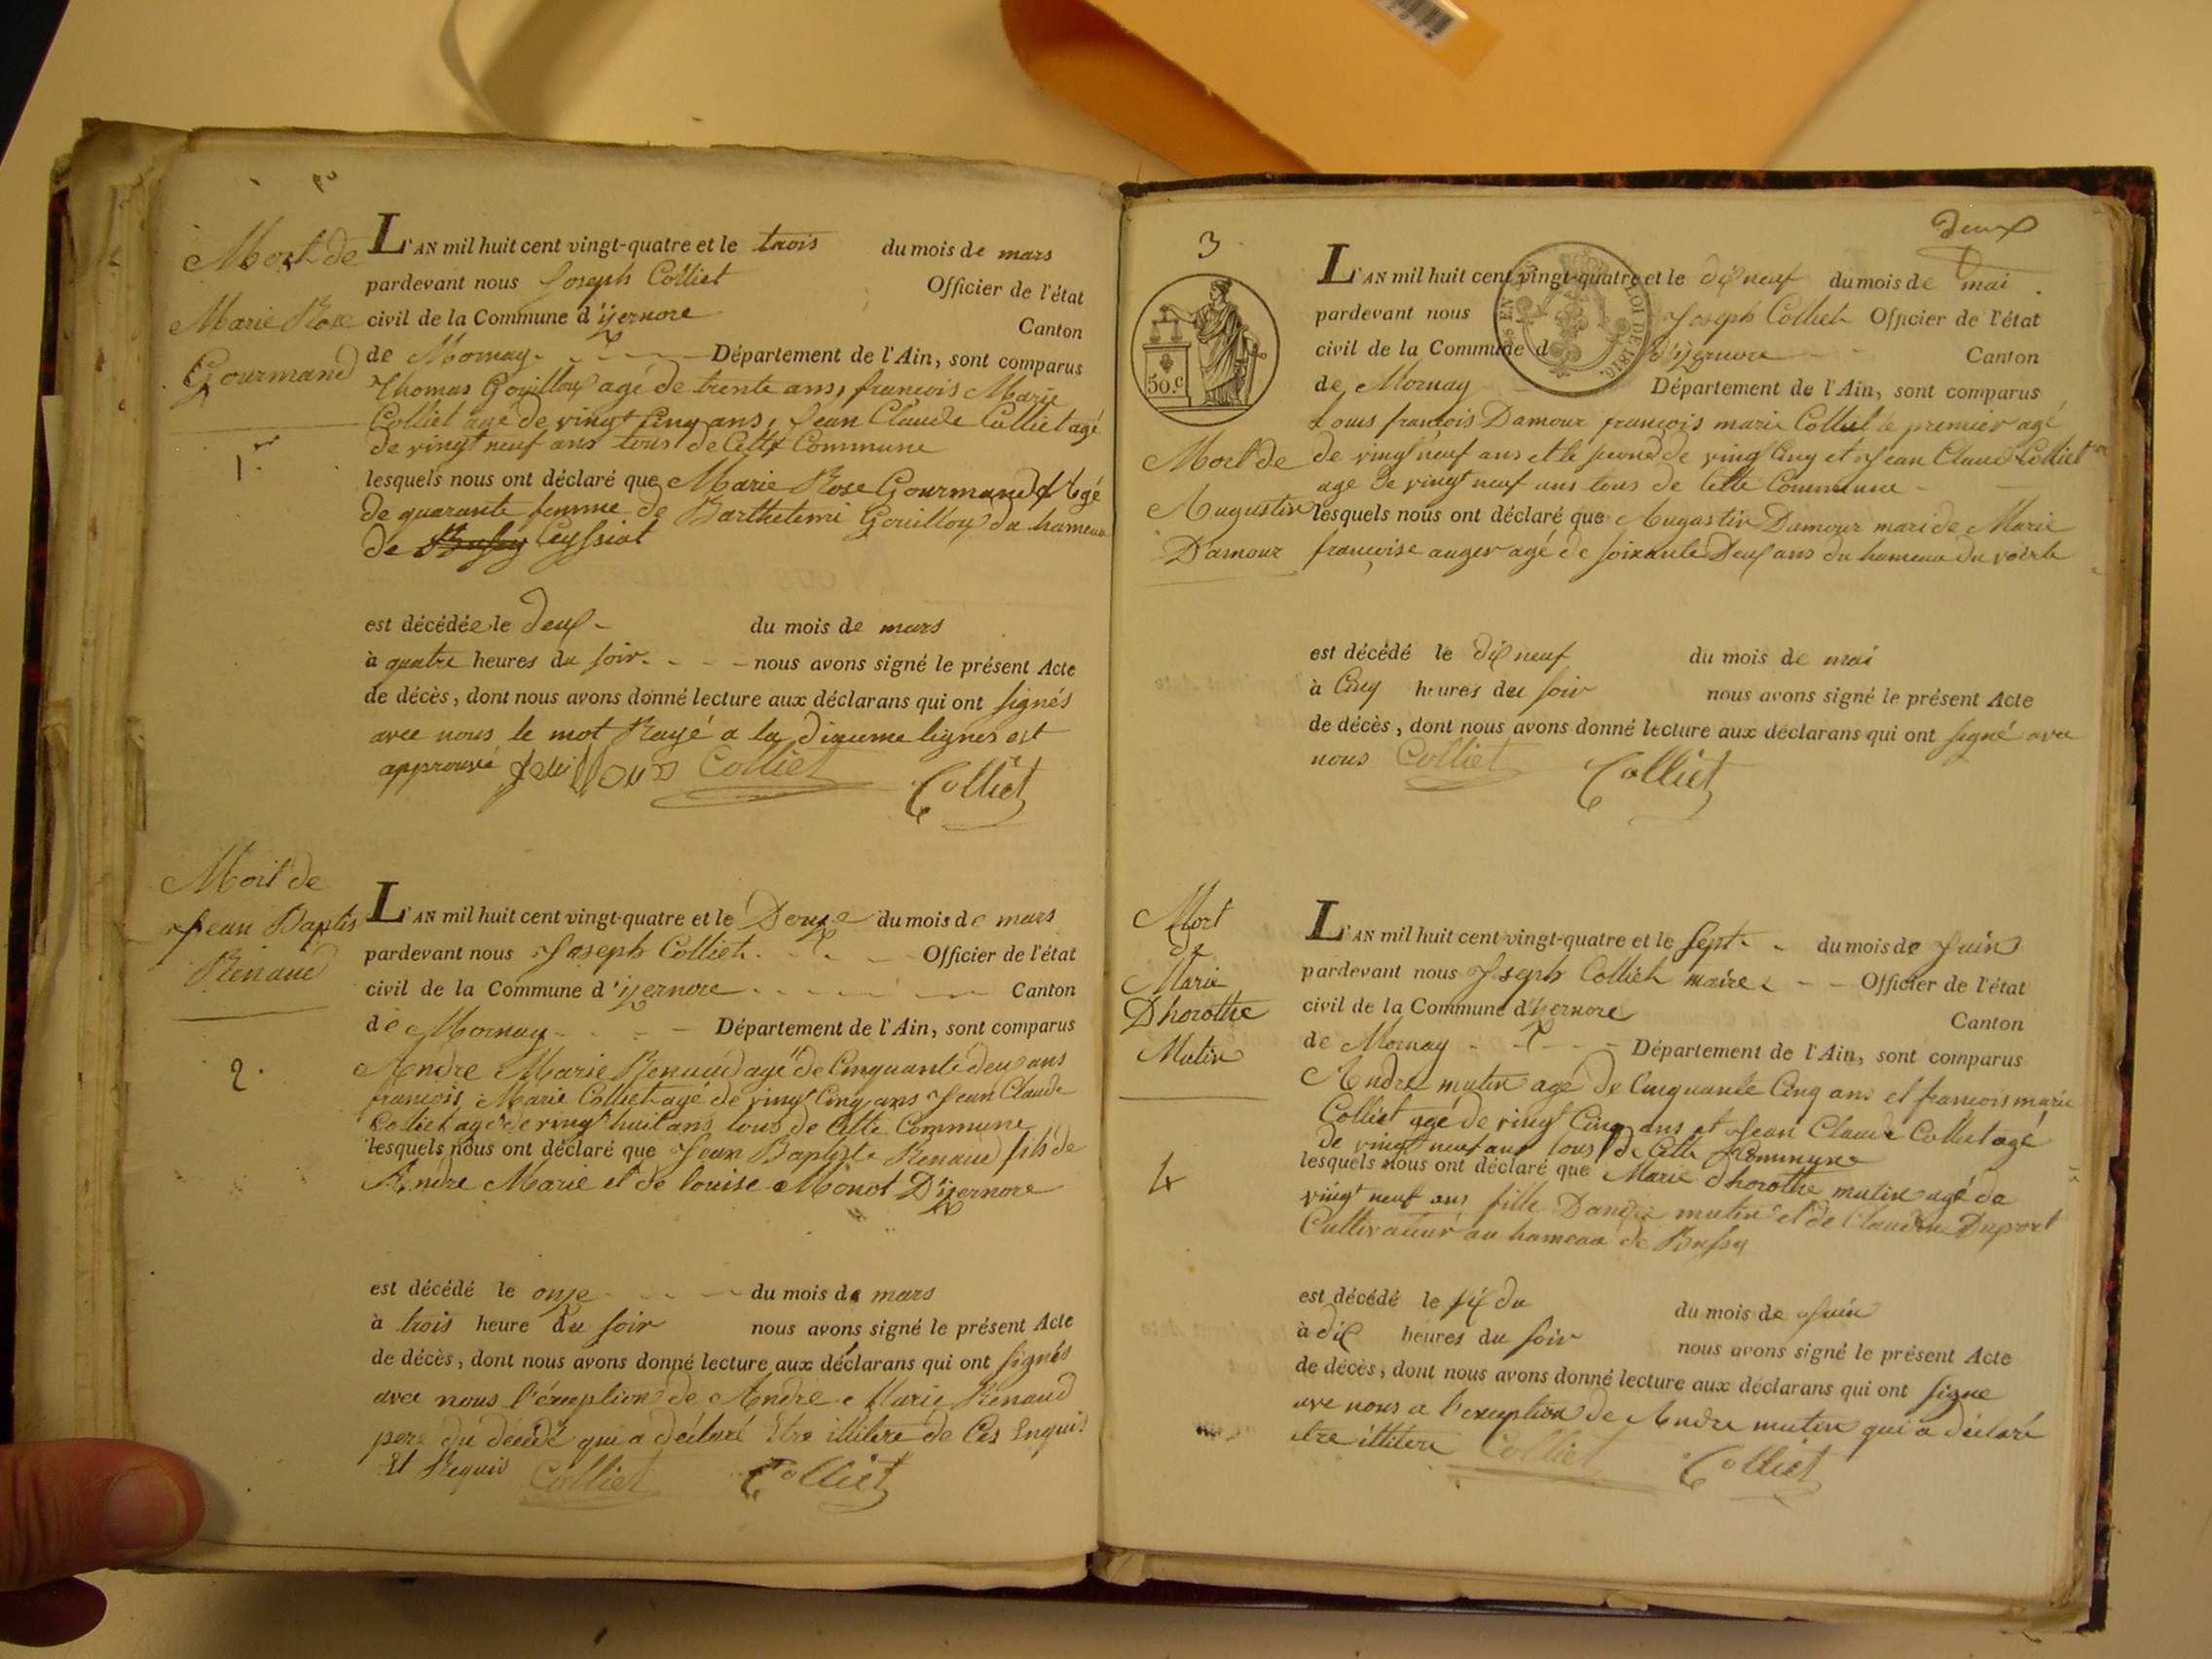 Mort de
Marie Rose
Gourmand
1.er
L'AN mil huit cent vingt-quatre et le trois du mois de mars
pardevant nous Joseph Colliet Officier de l'état
civil de la Commune d'yzernore Canton
de Mornay Département de l'Ain, sont comparus
Thomas Gouilloux agé de trente ans, francois Marie
Colliet agé de vingt Cinq ans, Jean Claude Colliet agé
de vingt neuf ans tous de Cette Commune
lesquels nous ont déclaré que Marie Rose Gourmand Agé
de quarante femme de Barthelemi Gouilloux du hameau
de Bussy Ceyssiat
est décédée le deux du mois de mars
à quatre heures du soir nous avons signé le présent Acte
de décès, dont nous avons donné lecture aux déclarans qui ont signés
avec nous le mot Rayé a la dixieme lignes est
approuvé Colliet Colliet
Mort de
Jean Baptis
Renaud
2.
L'AN mil huit cent vingt-quatre et le Douze du mois de mars
pardevant nous Joseph Colliet Officier de l'état
civil de la Commune d'yzernore Canton
de Mornay Département de l'Ain, sont comparus
Andre Marie Renaud agé de Cinquante deux ans
francois Marie Colliet agé de vingt Cinq ans Jean Claude
Colliet agé de vingt huit ans tous de Cette Commune
lesquels nous ont déclaré que Jean Baptiste Renaud fils de
Andre Marie et de louise Monot D'yzernore
est décédé le onze du mois de mars
à trois heure du soir nous avons signé le présent Acte
de décès, dont nous avons donné lecture aux déclarans qui ont signés
avec nous l'éxeption de Andre Marie Renaud
pere du décédé qui a déclaré Etre illitere de Ces Enquis
Et Requis Colliet Colliet
deux
3
50.c
LOI DE 1816
L'AN mil huit cent vingt-quatre et le dix neuf du mois de mai
pardevant nous Joseph Colliet Officier de l'état
civil de la Commune d d'yzernore Canton
de Mornay Département de l'Ain, sont comparus
Louis francois Damour francois marie Colliet le premier agé
Mort de
Augustin
Damour
de vingt neuf ans et le second de vingt Cinq et Jean Claud Colliet
agé de vingt neuf ans tous de Cette Commune
lesquels nous ont déclaré que Augustin Damour mari de Marie
francoise auger agé de soixante Deux ans du hameau du voerle
est décédé le dix neuf du mois de mai
à Cinq heures du soir nous avons signé le présent Acte
de décès, dont nous avons donné lecture aux déclarans qui ont signé avec
nous Colliet Colliet
Mort
de
Marie
Dhorothe
Mutin
4
L'AN mil huit cent vingt-quatre et le Sept du mois de Juin
pardevant nous Joseph Colliet maire Officier de l'état
civil de la Commune d'yzernore Canton
de Mornay Département de l'Ain, sont comparus
Andre mutin agé de Cinquante Cinq ans et francois marie
Colliet agé de vingt Cinq ans et Jean Claude Colliet agé
de vingt neuf ans tous de Cette Commune
lesquels nous ont déclaré que Marie dhorothe mutin agé de
vingt neuf ans fille Dandre mutin et de Claudine Duport
Cultivateur au hameau de Bussy
est décédé le six du du mois de Juin
à dix heures du soir nous avons signé le présent Acte
de décès, dont nous avons donné lecture aux déclarans qui ont signe
ave nous a l'exeption de Andre mutin qui a déclaré
etre illitere Colliet Colliet